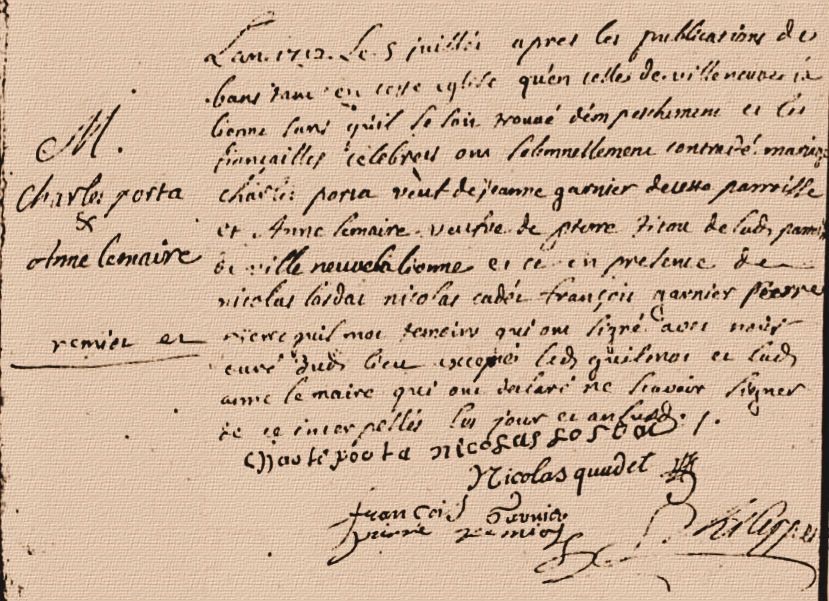 L'an 1712. Le 5 juillés apres les publications de
bans tant en cette eglise qu'en celles de villeneuve la
lionne sans qu'il se soit trouvé d'empeschement et les
fiançailles célebrées ont solemnellement contracté mariage
M.
Charles porta
&
Anne lemaire
charles porta veuf de jeanne garnier de cette parroisse
et Anne lemaire veufve de pierre titou de lad parroi
de ville neuve la lionne et ce en présence de
nicolas losdat nicolas cadet françois garnier pierre
remiot et
pierre quilmot temoins qui ont signé avec nous
curé dud lieu excepté led quilmot et lad
anne lemaire qui ont declaré ne scavoir signer
de ce interpellés les jour et an susd.
Charle porta nicolas losdat
Nicolas quadet
francois Garnier
pierre remiot